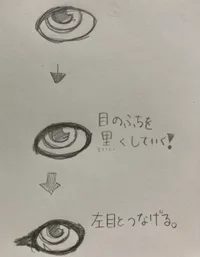 目のふちを
黒くしていく!
左目とつなげる。